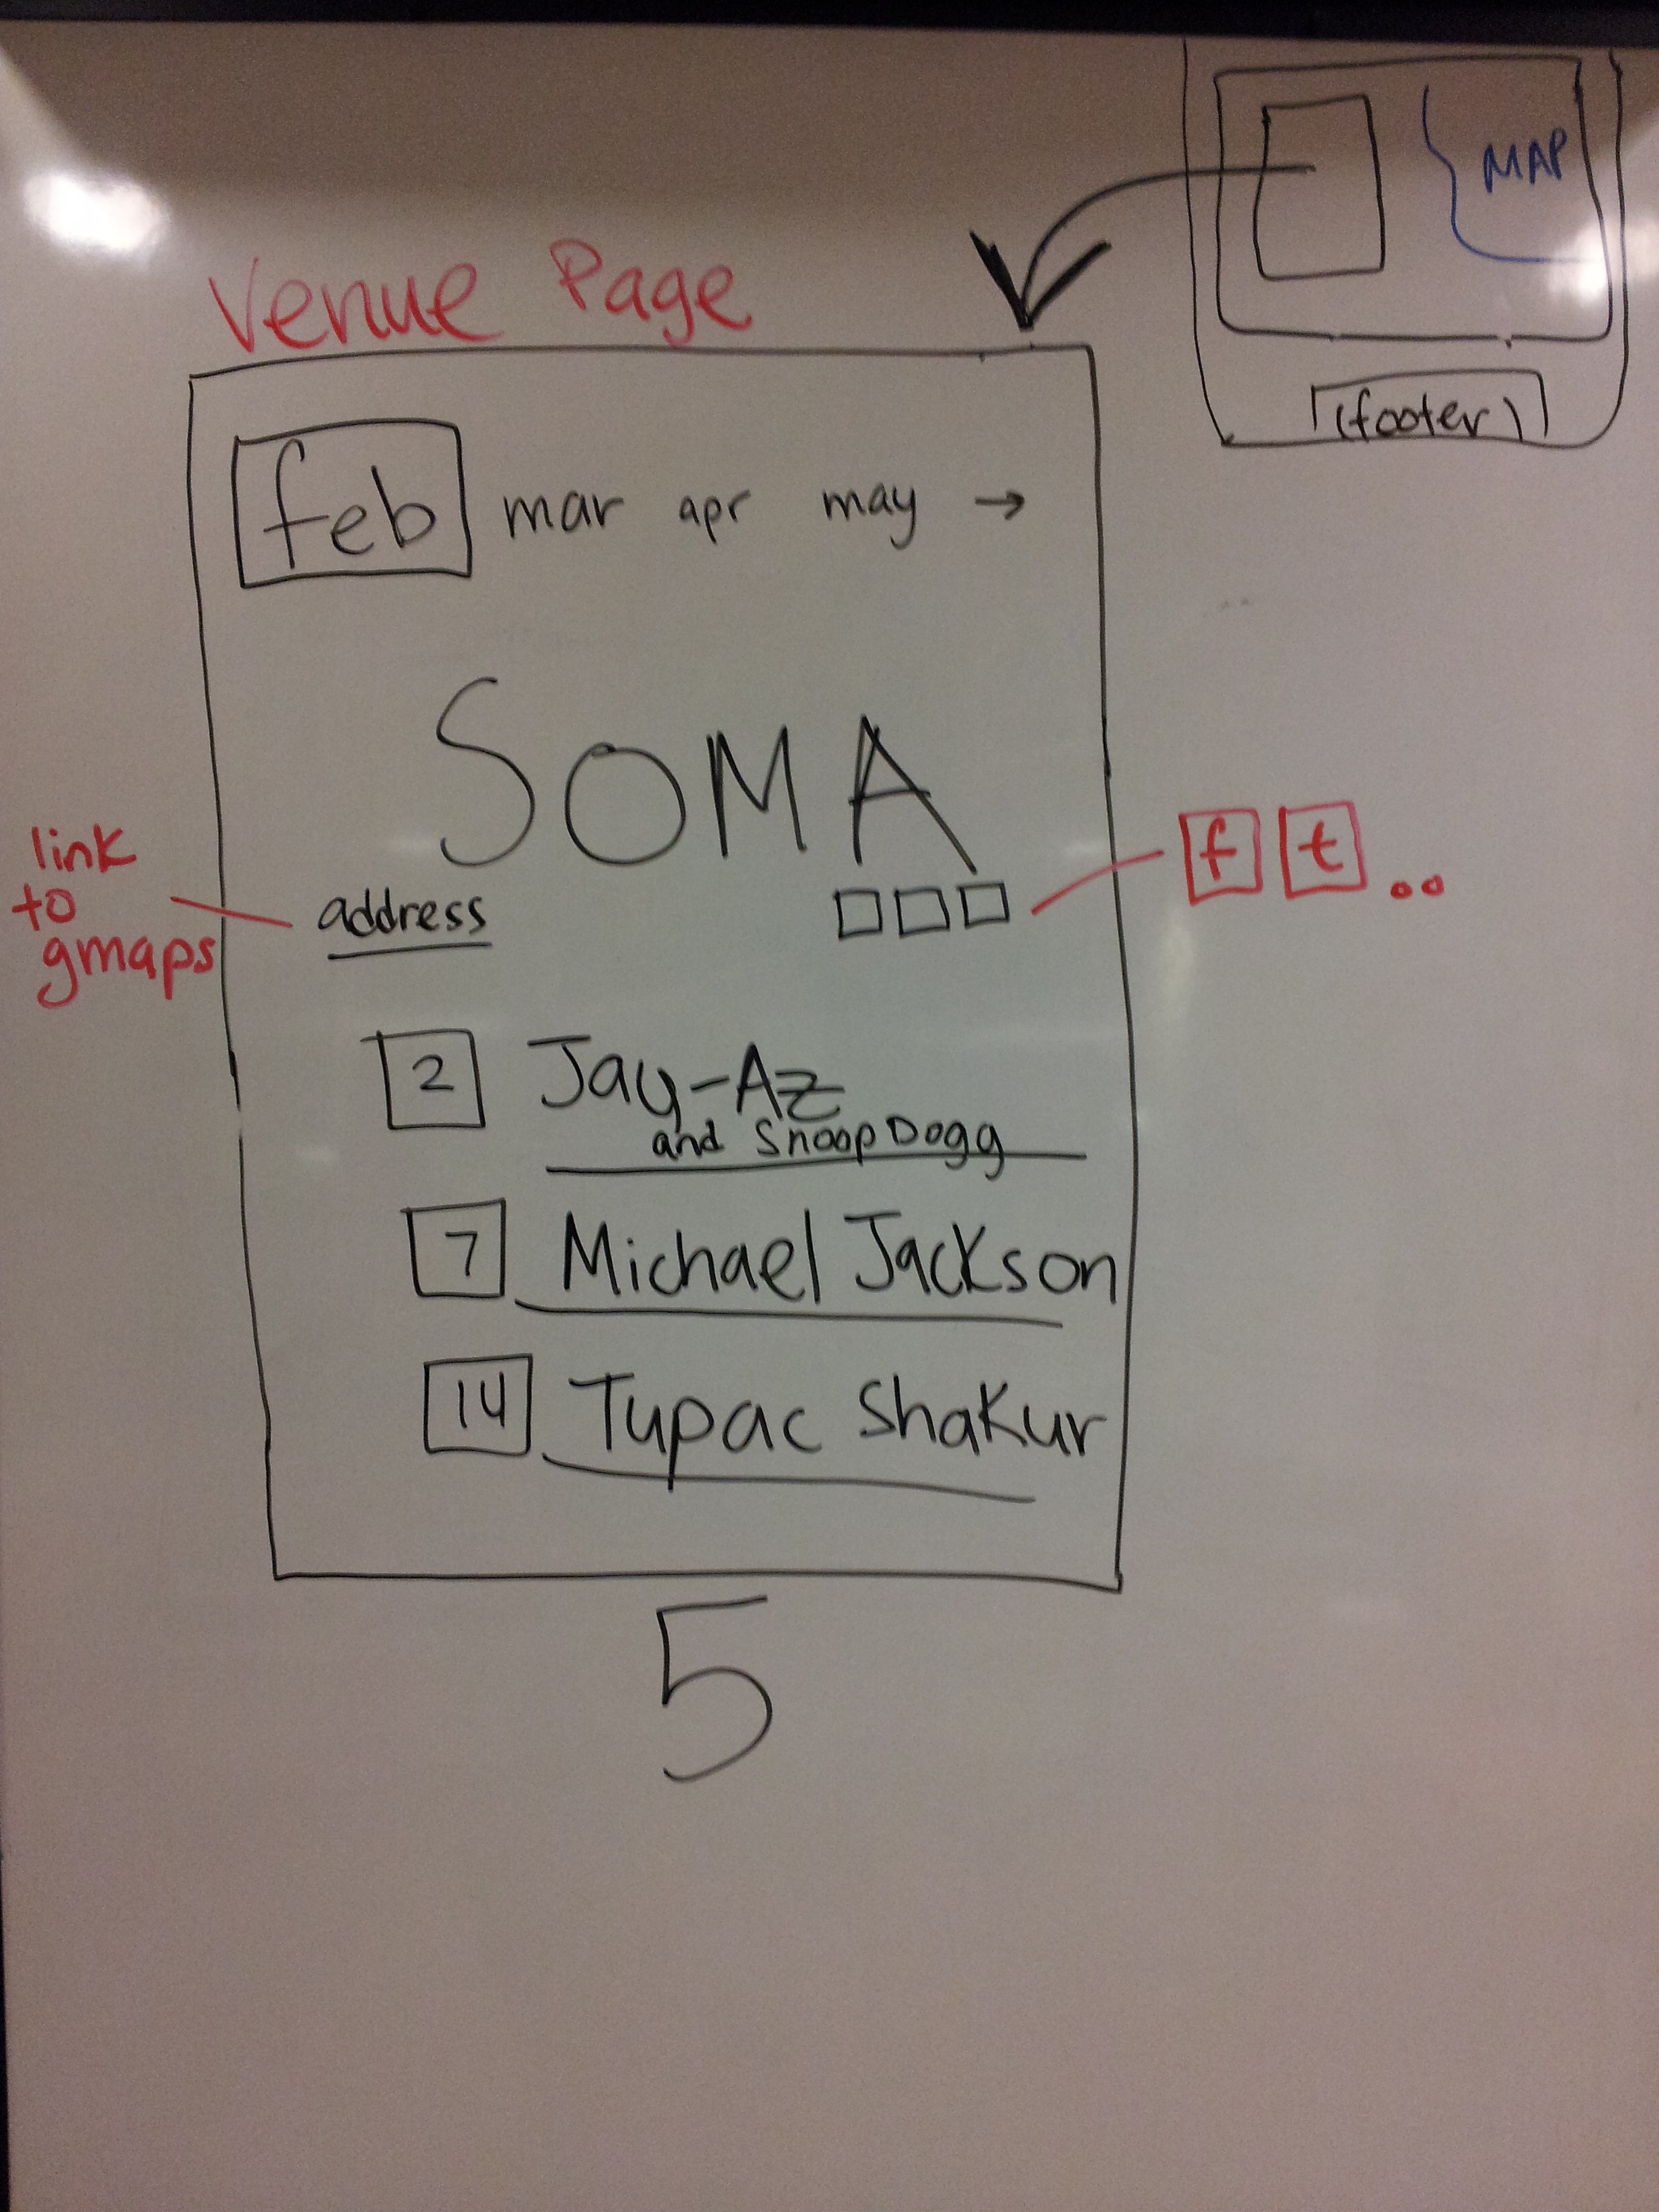 MAP
(footer)
Venue Page
feb mar apr may →
SOMA
link
to
gmaps
address
f t ..
2 Jay-Az
and Snoop Dogg
7 Michael Jackson
14 Tupac Shakur
5